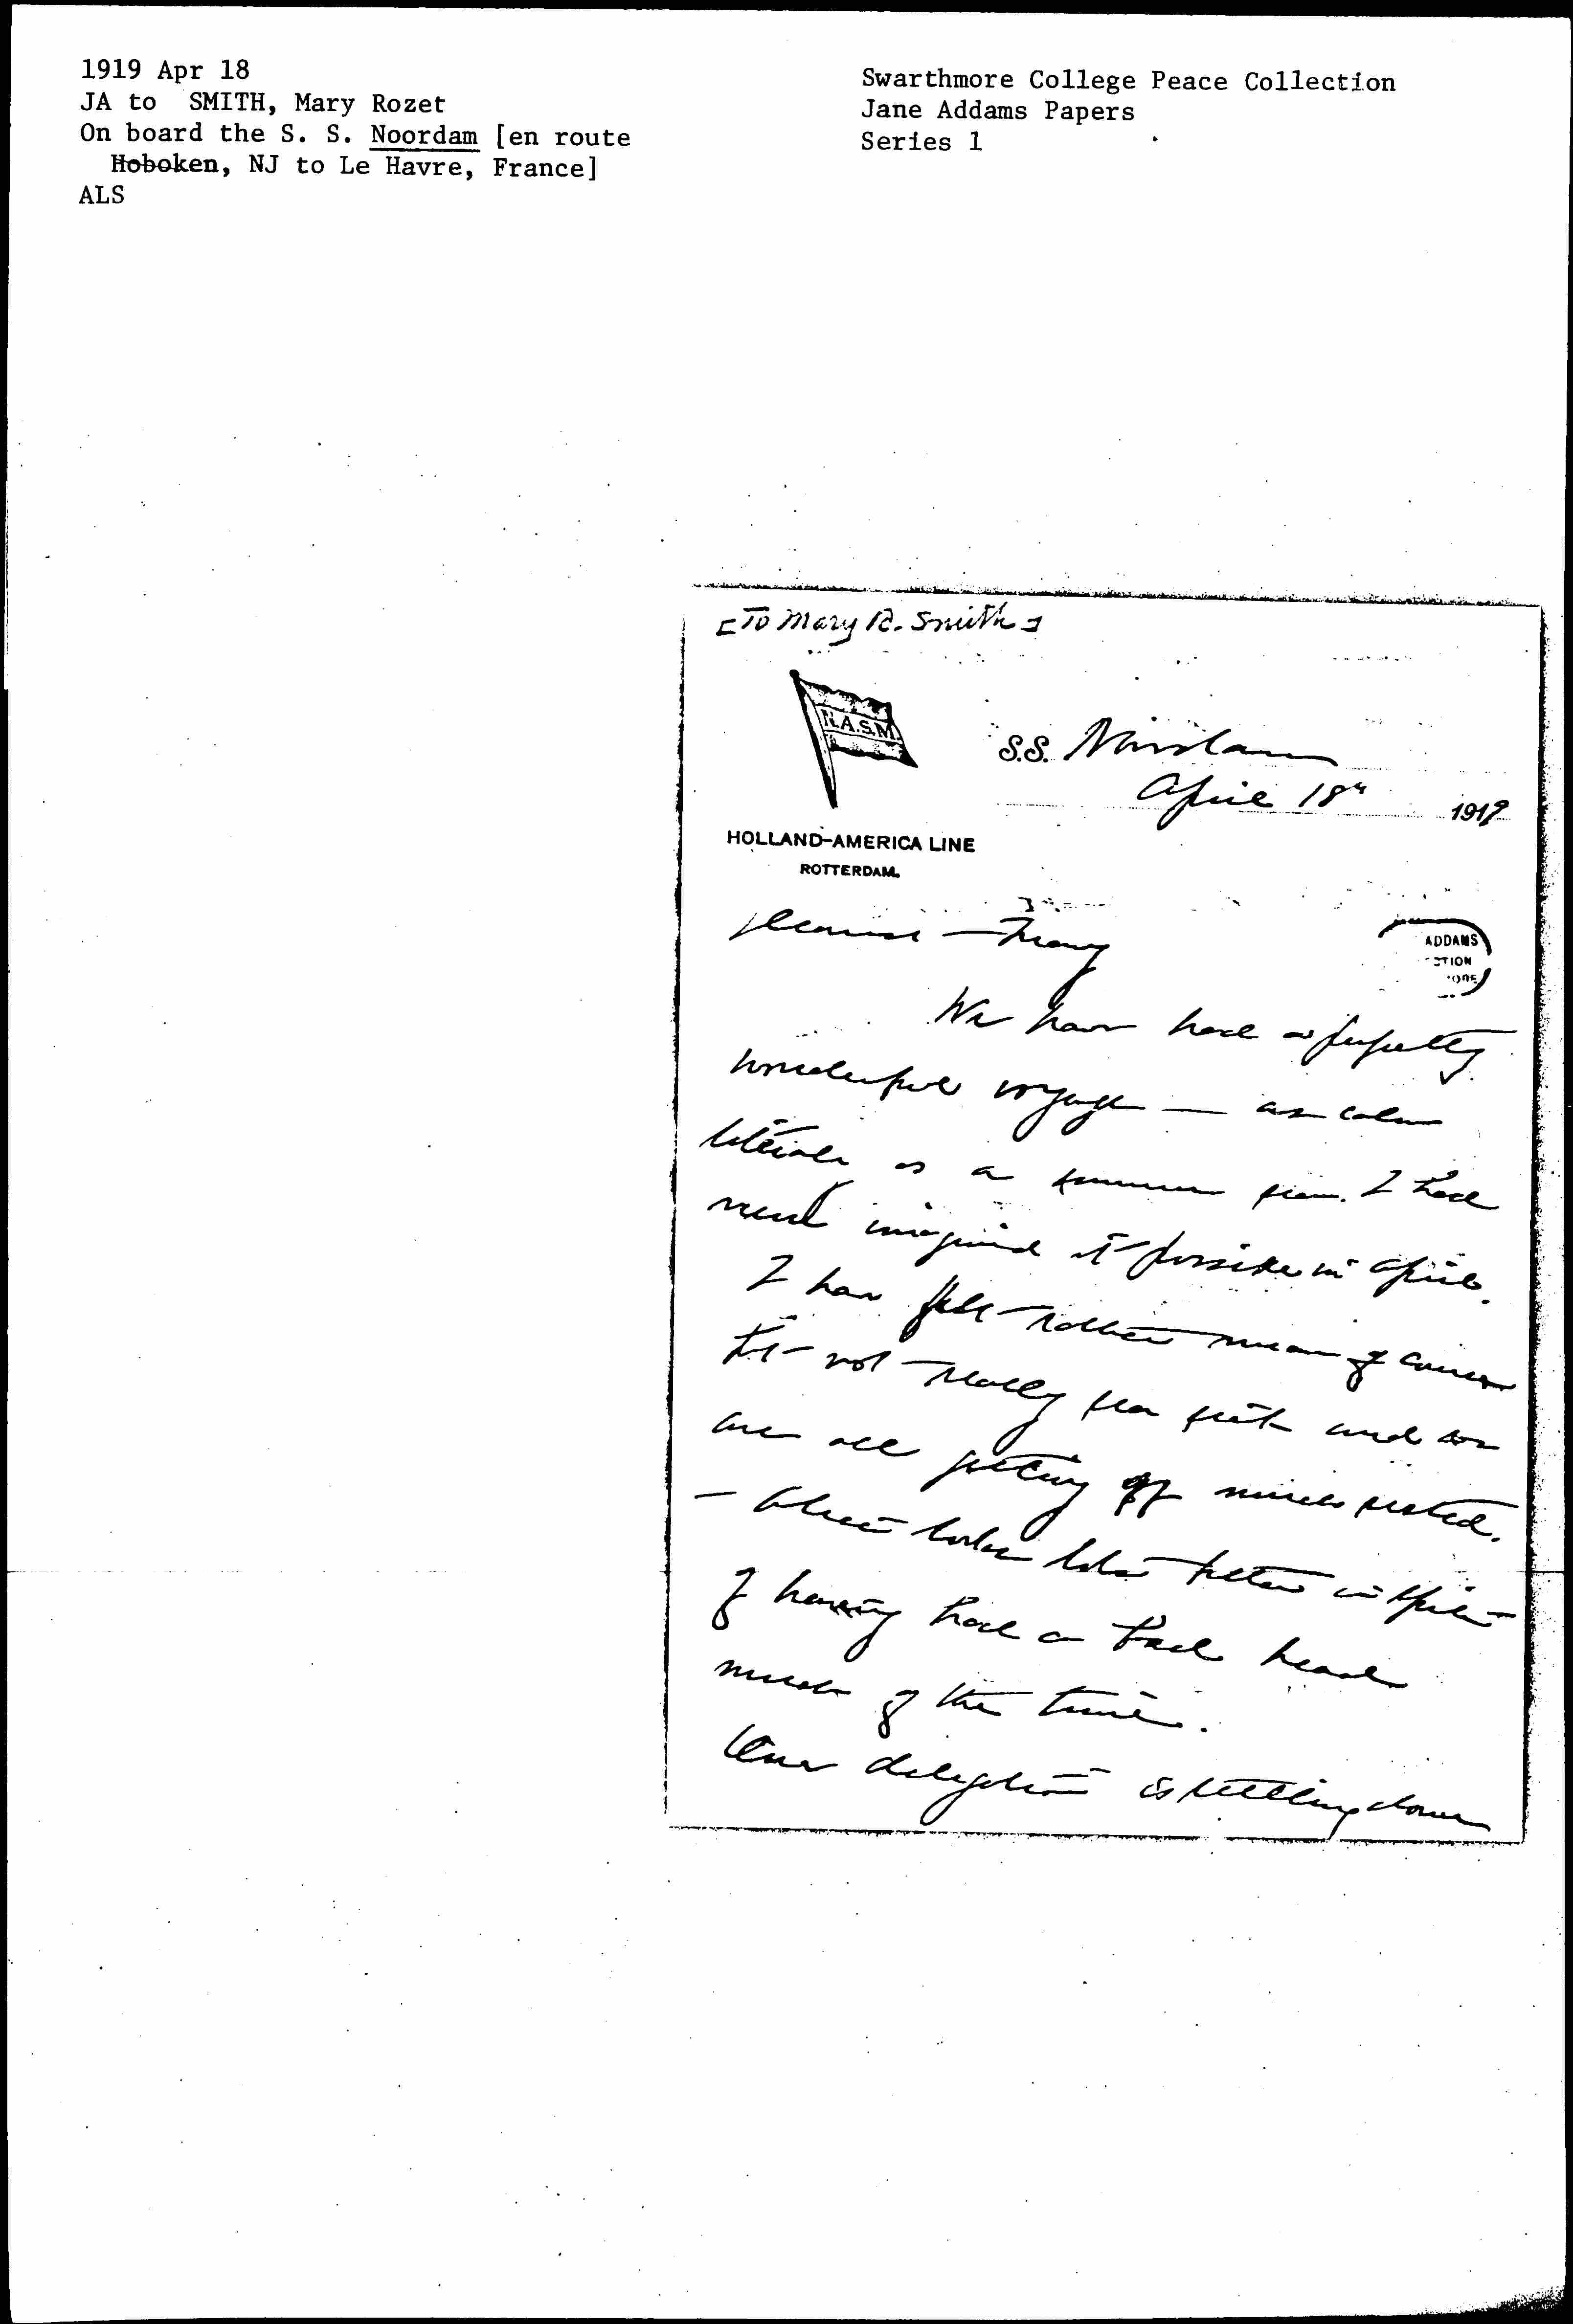 1919 Apr 18
JA to SMITH, Mary Rozet
On board the S. S. Noordam [en route
Hoboken, NJ to Le Havre, France]
ALS
Swarthmore College Peace Collection
Jane Addams Papers
Series 1
[To Mary R. Smith]
N.A.S.M.
S.S. Noordam
April 18" 1919
HOLLAND-AMERICA LINE
ROTTERDAM.
Dearest Mary
ADDAMS
We have had a perfectly
wonderful voyage — as calm
literally as a summer sea. I had
never imagined it possible in April.
I have felt rather mean of course
but not really sea sick and we
are all getting off much rested.
— Alice looks lots better in spite
of having had a bad head
much of the time.
Our delegation is settling down